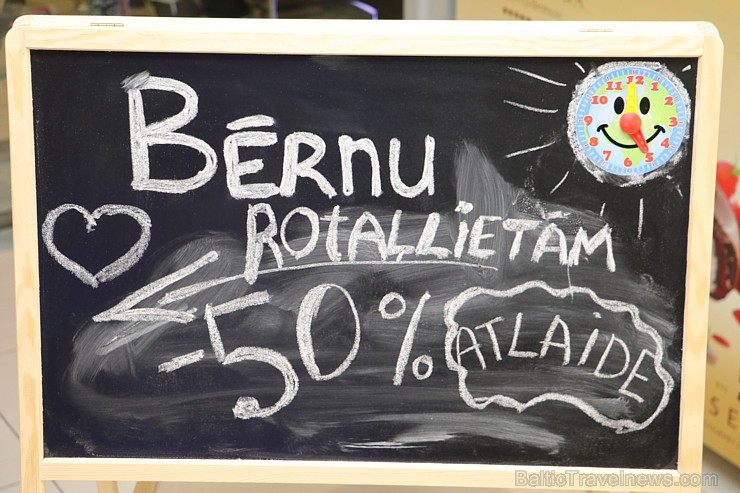 BĒRNU
ROTAĻLIETĀM
-50%
ATLAIDE
12
11 1
10 2
9 3
8 4
7 5
6
BalticTravelnews.com